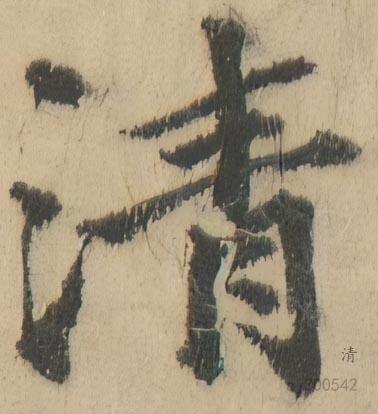 清
清
200542